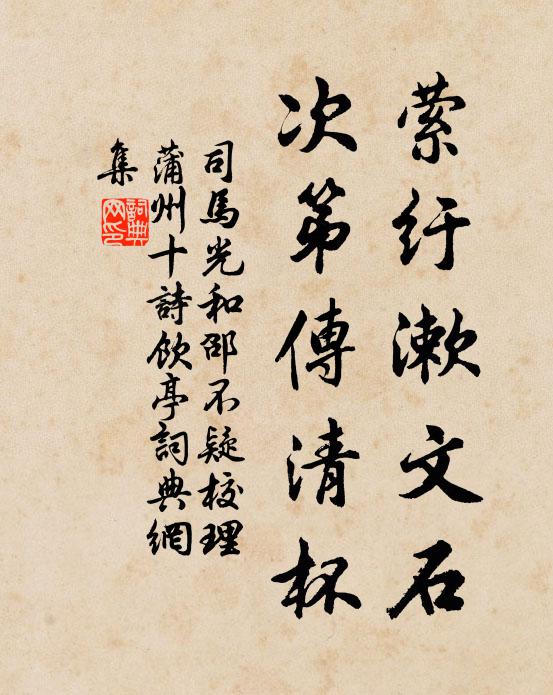 萦纡漱文石
次第傳清杯
司馬光和邵不疑校理
蒲州十詩飲亭詞典網
集
詞典網印